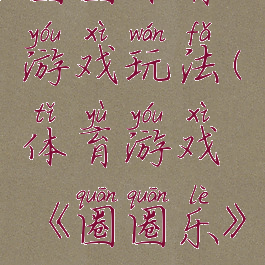 yóu xì wán fǎ
游戏玩法(
tǐ yù yóu xì
体育游戏
quān quān lè
《圈圈乐》